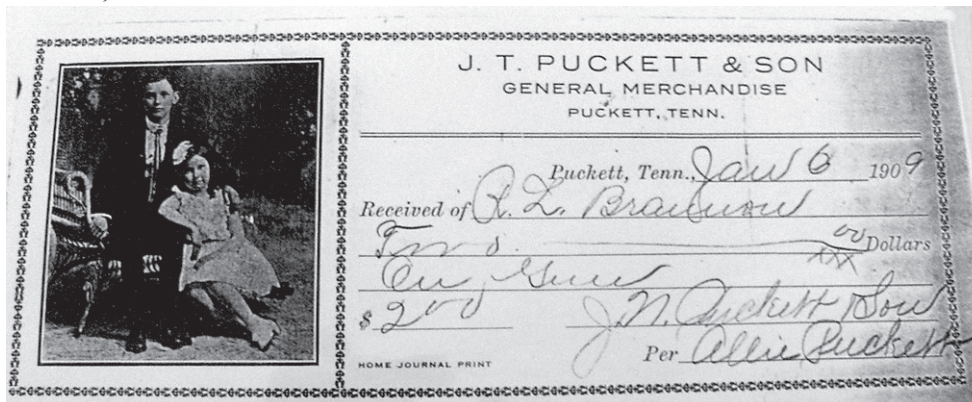 J. T. PUCKETT & SON
GENERAL MERCHANDISE
PUCKETT, TENN.
Puckett, Tenn., Jan 6 1909
Received of R. L. Brannon
Two 00/xxx Dollars
On Gun
$ 2 00 Puckett & Son
Per Allie Puckett
HOME JOURNAL PRINT